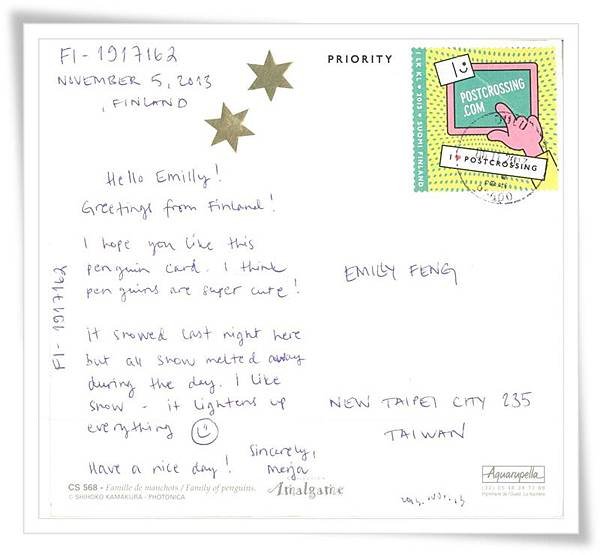 FI-1917162
NOVEMBER 5, 2013
, FINLAND
PRIORITY
1 LK KL • 2013 • SUOMI FINLAND
POSTCROSSING
.COM
I ♥ POSTCROSSING
Hello Emilly!
Greetings from Finland!
I hope you like this
penguin card. I think
penguins are super cute!
It snowed last night here
but all snow melted away
during the day. I like
snow - it lightens up
everything ☺
Have a nice day!
Sincerely,
Merja
FI-1917162
EMILLY FENG
NEW TAIPEI CITY 235
TAIWAN
CS 568 - Famille de manchots / Family of penguins.
© SHIHOKO KAMAKURA - PHOTONICA
Amalgame
Aquarupella